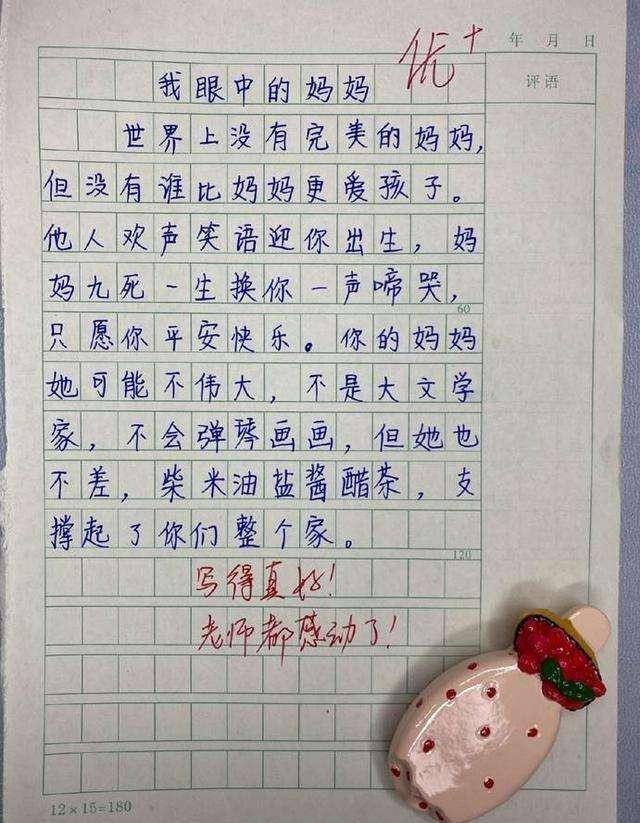 优+
年 月 日
评语
我眼中的妈妈
世界上没有完美的妈妈,
但没有谁比妈妈更爱孩子。
他人欢声笑语迎你出生,妈
妈九死一生换你一声啼哭,
60
只愿你平安快乐。你的妈妈
她可能不伟大,不是大文学
家,不会弹琴画画,但她也
不差,柴米油盐酱醋茶,支
撑起了你们整个家。
120
写得真好!
老师都感动了!
12×15=180